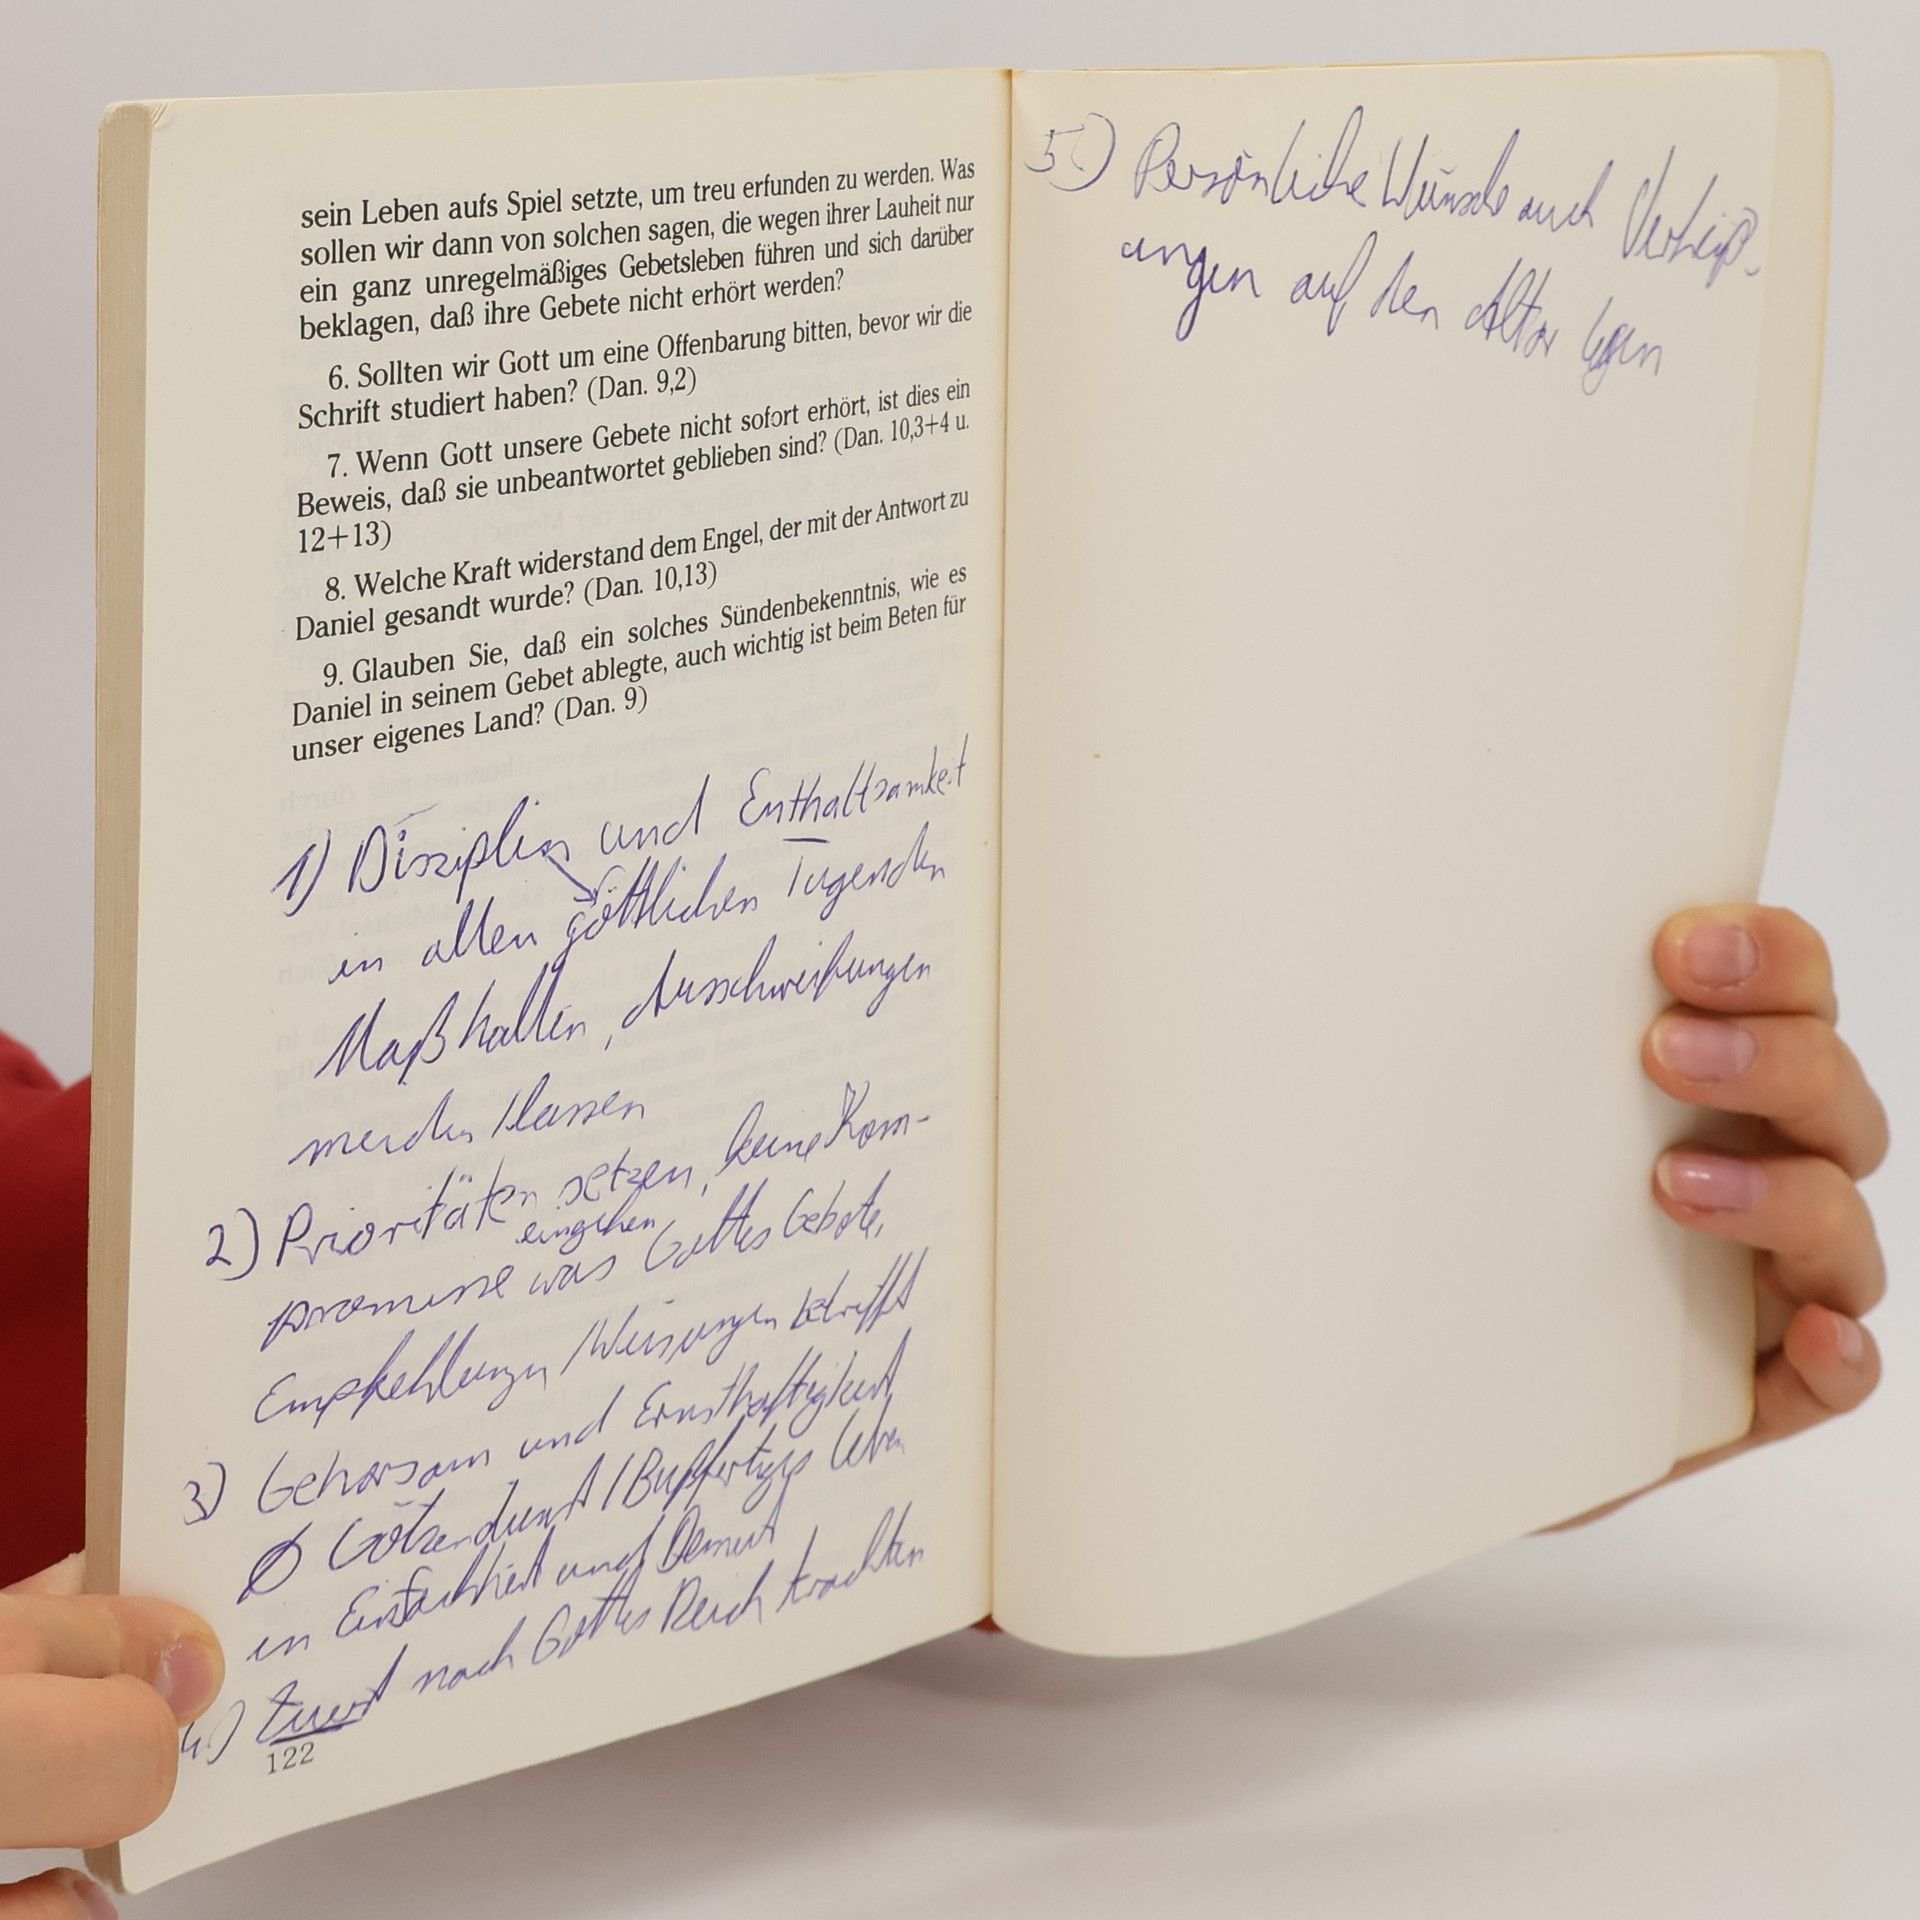 sein Leben aufs Spiel setzte, um treu erfunden zu werden. Was
sollen wir dann von solchen sagen, die wegen ihrer Lauheit nur
ein ganz unregelmäßiges Gebetsleben führen und sich darüber
beklagen, daß ihre Gebete nicht erhört werden?
6. Sollten wir Gott um eine Offenbarung bitten, bevor wir die
Schrift studiert haben? (Dan. 9,2)
7. Wenn Gott unsere Gebete nicht sofort erhört, ist dies ein
Beweis, daß sie unbeantwortet geblieben sind? (Dan. 10,3+4 u.
12+13)
8. Welche Kraft widerstand dem Engel, der mit der Antwort zu
Daniel gesandt wurde? (Dan. 10,13)
9. Glauben Sie, daß ein solches Sündenbekenntnis, wie es
Daniel in seinem Gebet ablegte, auch wichtig ist beim Beten für
unser eigenes Land? (Dan. 9)
1) Disziplin und Enthaltsamkeit
in allen göttlichen Tugenden
Maß halten, Ausschweifungen
meiden / lassen
2) Prioritäten setzen, keine Kom-
eingehen
promisse was Gottes Gebote,
Empfehlungen / Weisungen betrifft
3) Gehorsam und Ernsthaftigkeit
Ø Götzendienst / Bußfertiges Leben
in Einfachheit und Demut
4) Zuerst nach Gottes Reich trachten
122
5) Persönliche Wünsche auch Verheiß-
ungen auf den Altar legen